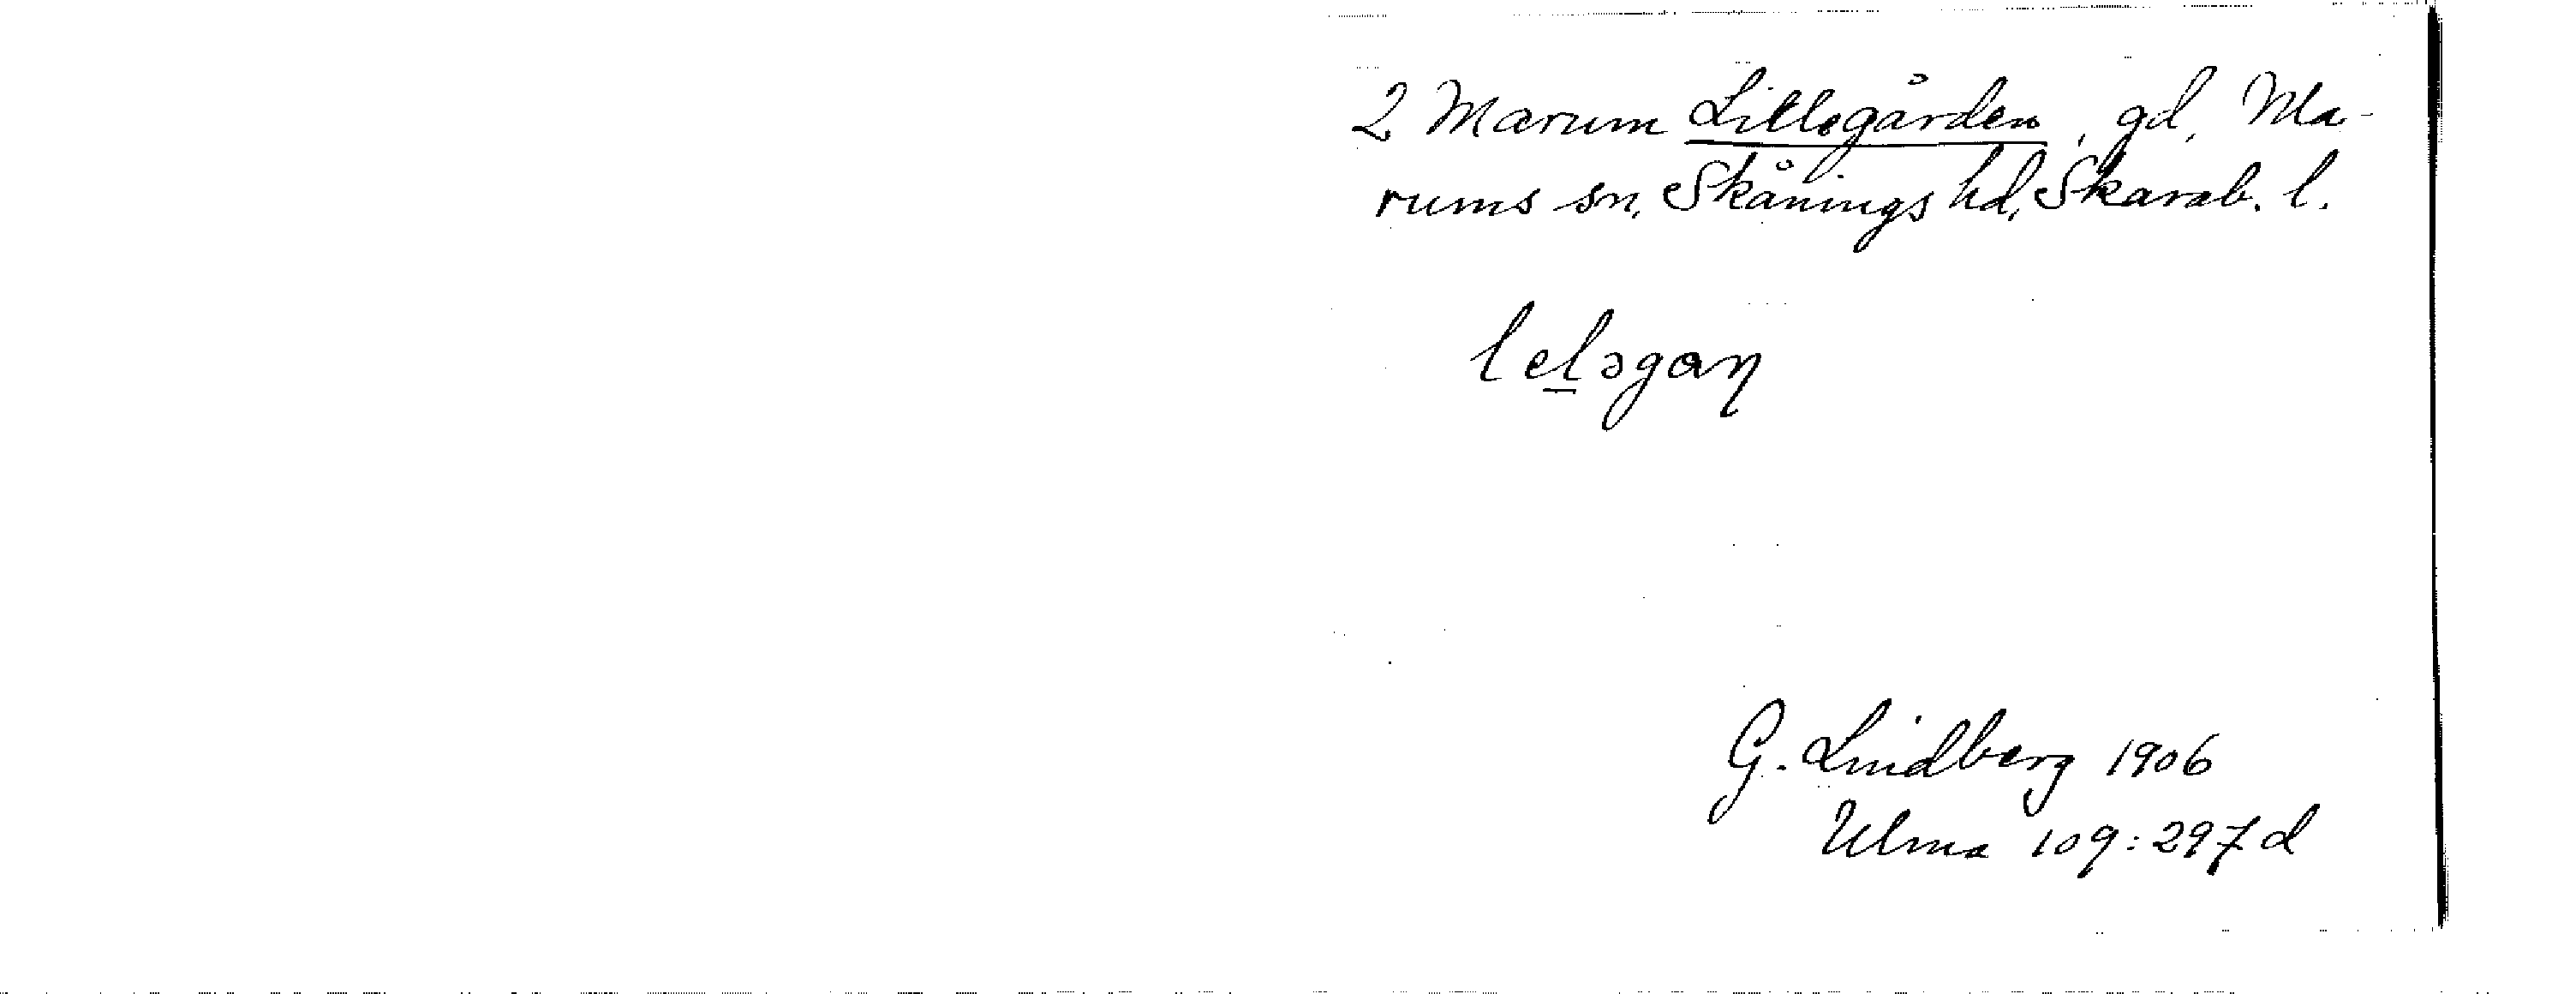 2 Marum Lillegården, gd, Ma-
rums sn, Skånings hd, Skarab. l.
lel̲əgaɳ
G. Lindberg 1906
Ulma 109:297d